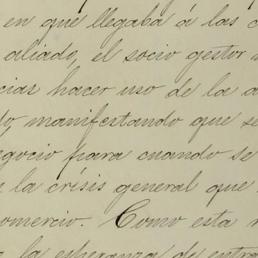 en que llegaba á las
aliado, el socio gestor
cias hacer uso de la
do, manifestando que se
egocio para cuando se
la crísis general que
omercio. Como esta
la esperanza de